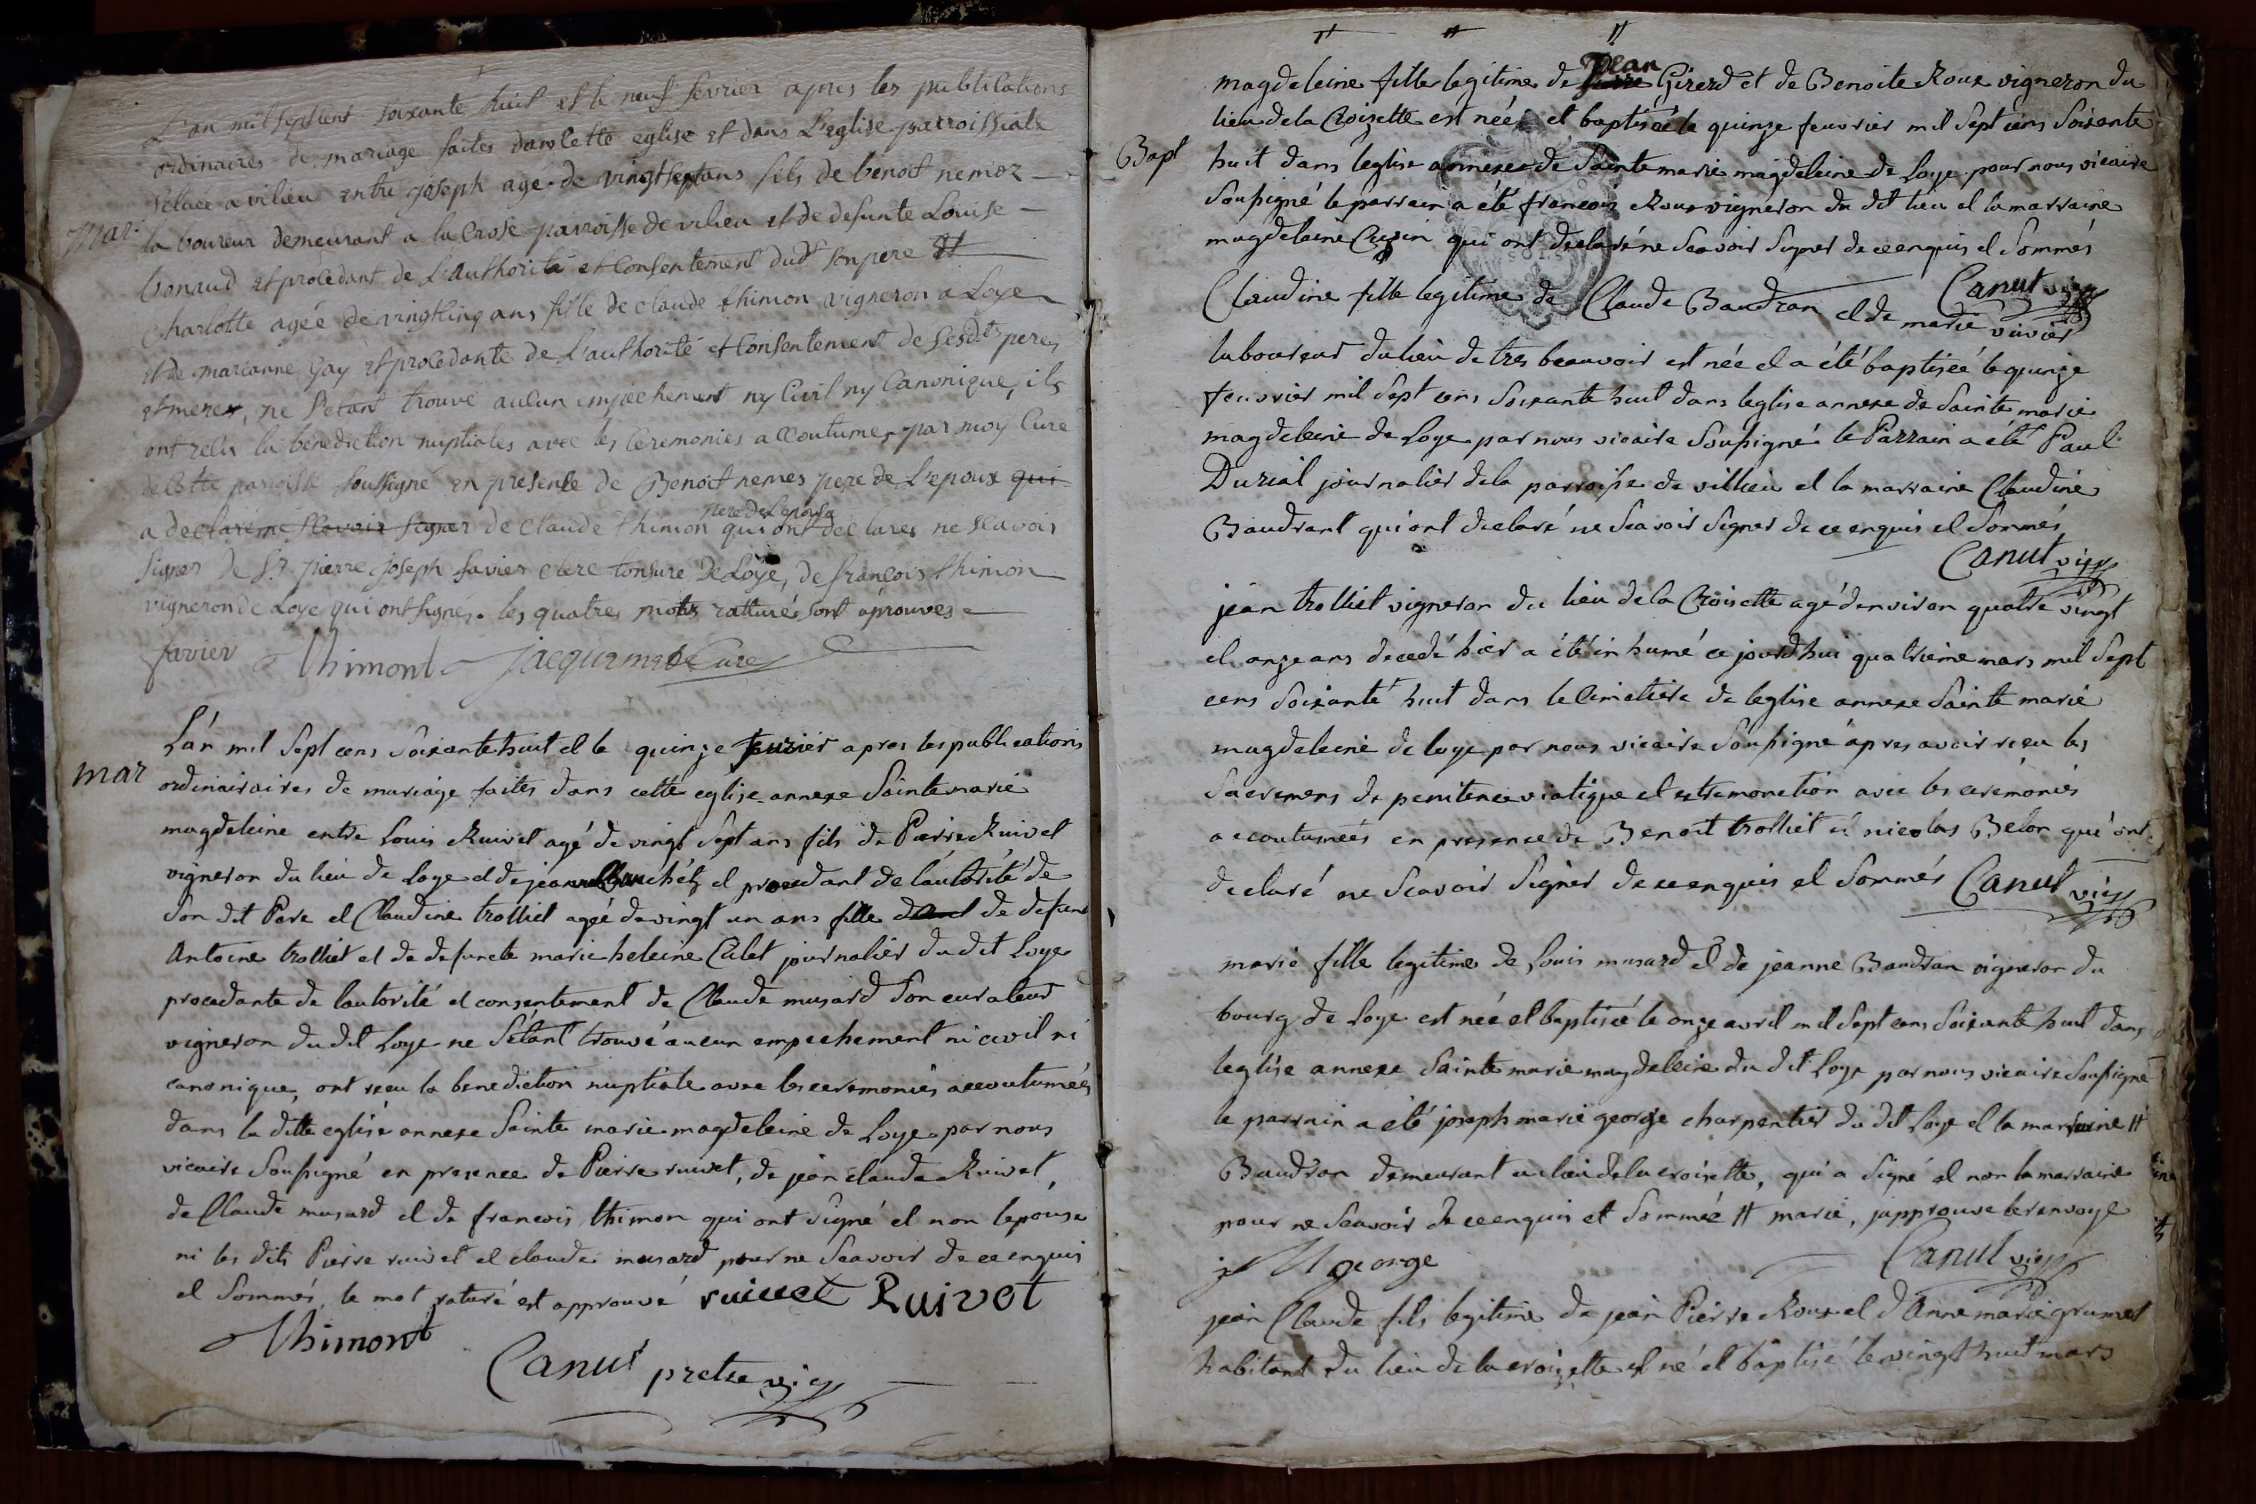 L'an mil sept cent soixante huit et le neuf fevrier apres les publications
ordinaires de mariage faites dans cette eglise et dans L'eglise parroissiale
de vilieu entre joseph agé de vingt sept ans fils de benoit nemoz
mar.
laboureur demeurant a la Crose parroisse de vilieu et de defunte Louise
bonaud et procedant de L'authorité et Consentement dud.t son pere et
Charlotte agée de vingt cinq ans fille de claude thimon vigneron a Loye
et de marianne Gay et procedante de L'authorité et Consentement de sesd.ts pere
et mere, ne s'etant trouvé aucun empechement ny Civil ny Canonique, ils
ont recu la benediction nuptiales avec les Ceremonies accoutumer par moy Curé
de cette paroisse soussigné en presence de Benoit nemes pere de L'epoux qui
pere de Lepouse
a declaré ne scavoir signer de claude thimon qui ont declarés ne scavoir
signer de S.r pierre joseph favier clerc tonsuré de Loye, de francois thimon
vigneron de Loye qui ont signés. les quatres mots ratturés sont aprouves
favier Thimont Curé
L'an mil sept cens soixante huit et le quinze fevrier apres les publications
mar
ordinairaires de mariage faites dans cette eglise annexe sainte marie
magdeleine entre Louis Ruivet agé de vingt sept ans fils de Pierre Ruivet
vigneron du lieu de Loye et de jeanne et procedant de l'autorité de
son dit Pere et Claudine trolliet agée de vingt un ans fille de defunt
Antoine trolliet et de defuncte marie heleine Calet journalier du dit Loye
procedante de l'autorité et consentement de Claude musard son curateur
vigneron du dit Loye ne s'étant trouvé aucun empechement ni civil ni
canonique, ont recu la benediction nuptiale avec les ceremonies accoutumées
dans la ditte eglise annexe sainte marie magdeleine de Loye par nous
vicaire soussigné en presence de Pierre ruivet, de jean claude Ruivet,
de Claude musard et de francois thimon qui ont signé et non lepouse
ni les dits Pierre ruivet et claude musard pour ne scavoir de ce enquis
et sommés, le mot raturé est approuvé ruivet Ruivet
Thimont
Canut pretre vic
jean
magdeleine fille legitime de Girerd et de Benoite Roux vigneron du
lieu de la Croizette est née et baptisée le quinze feuvrier mil sept cens soixante
Bapt
huit dans leglise annexe de sainte marie magdeleine de Loye pour nous vicaire
soussigné le parrain a été francois Roux vigneron du dit lieu et la marraine
magdeleine Cuzin qui ont declaré ne scavoir signer de ce enquis et sommés
Canut vic
Claudine fille legitime de Claude Baudran et de marie vivier
laboureur du lieu de tres beauvoir est née et a été baptisée le quinze
feuvrier mil sept cens soixante huit dans leglise annexe de sainte marie
magdeleine de Loye par nous vicaire soussigné le Parrain a été Paul
Durial journalier de la parroisse de villieu et la marraine Claudine
Baudrant qui ont declaré ne scavoir signer de ce enquis et sommés
Canut vic
jean trolliet vigneron du lieu de la Croisette agé denviron quatre vingt
et onze ans decedé hier a été inhumé ce jourdhui quatrieme mars mil sept
cens soixante huit dans le Cimetiere de leglise annexe sainte marie
magdeleine de loye par nous vicaire soussigné apres avoir recu les
sacremens de penitence viatique et extremonction avec les ceremonies
accoutumées en presence de Benoit trolliet et nicolas Belon qui ont
declaré ne scavoir signer de ce enquis et sommés Canut vic
marie fille legitime de Louis musard et de jeanne Baudran vigneron du
bourg de Loye est née et baptisée le onze avril mil sept cens soixante huit dans
leglise annexe sainte marie magdeleine du dit Loye par nous vicaire soussigné
le parrain a été joseph marie george charpentier du dit Loye et la marraine #
Baudran demeurant au lieu de la croisette, qui a signé et non la marraine
pour ne scavoir de ce enquis et sommée # marie, japprouve le renvoye
j M george Canut vic
jean Claude fils legitime de jean Pierre Roux et d'Anne marie grumet
habitant du lieu de la croizette est né et baptisé le vingt huit mars